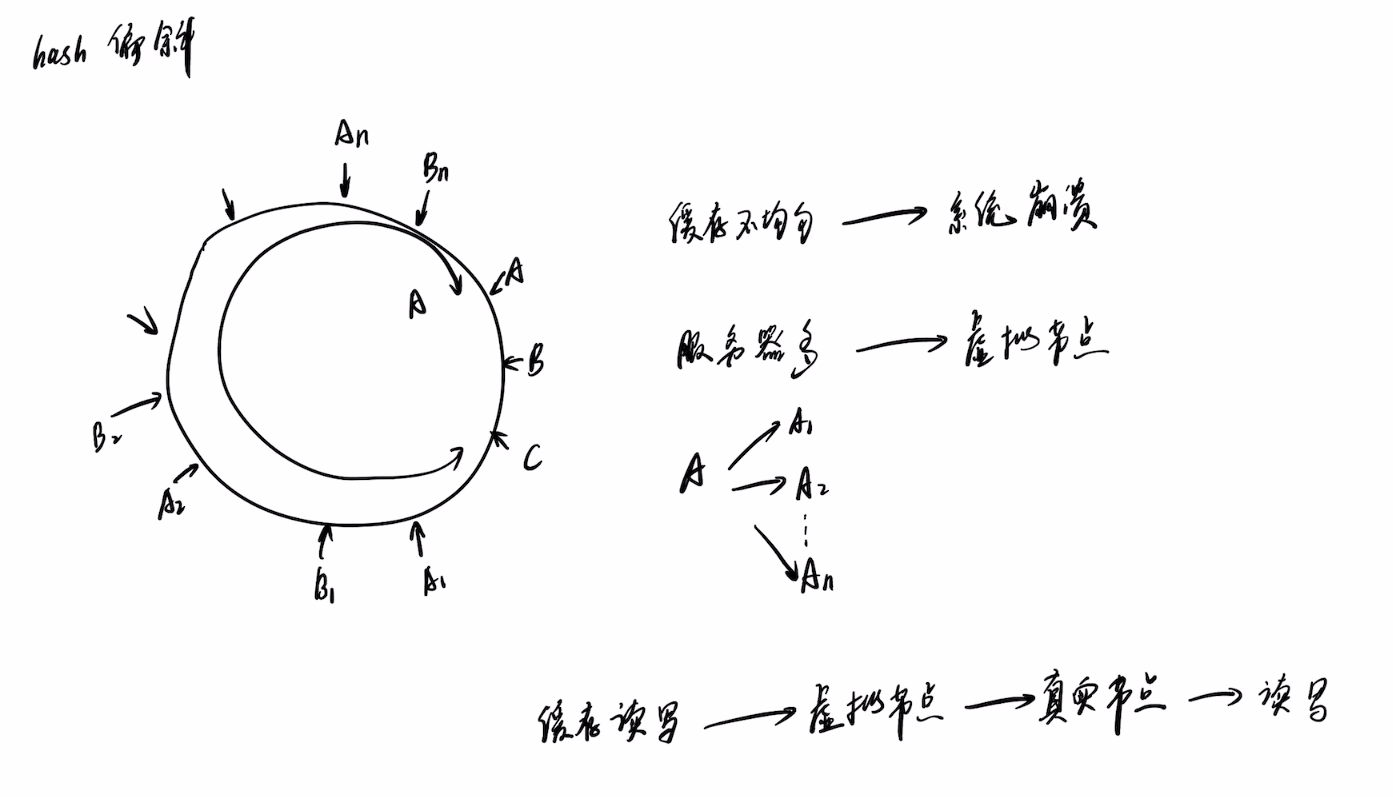 hash 偏斜
An
Bn
A
A
B
C
B2
A2
B1
A1
缓存不均匀 → 系统崩溃
服务器多 → 虚拟节点
A
A1
A2
An
缓存读写 → 虚拟节点 → 真实节点 → 读写